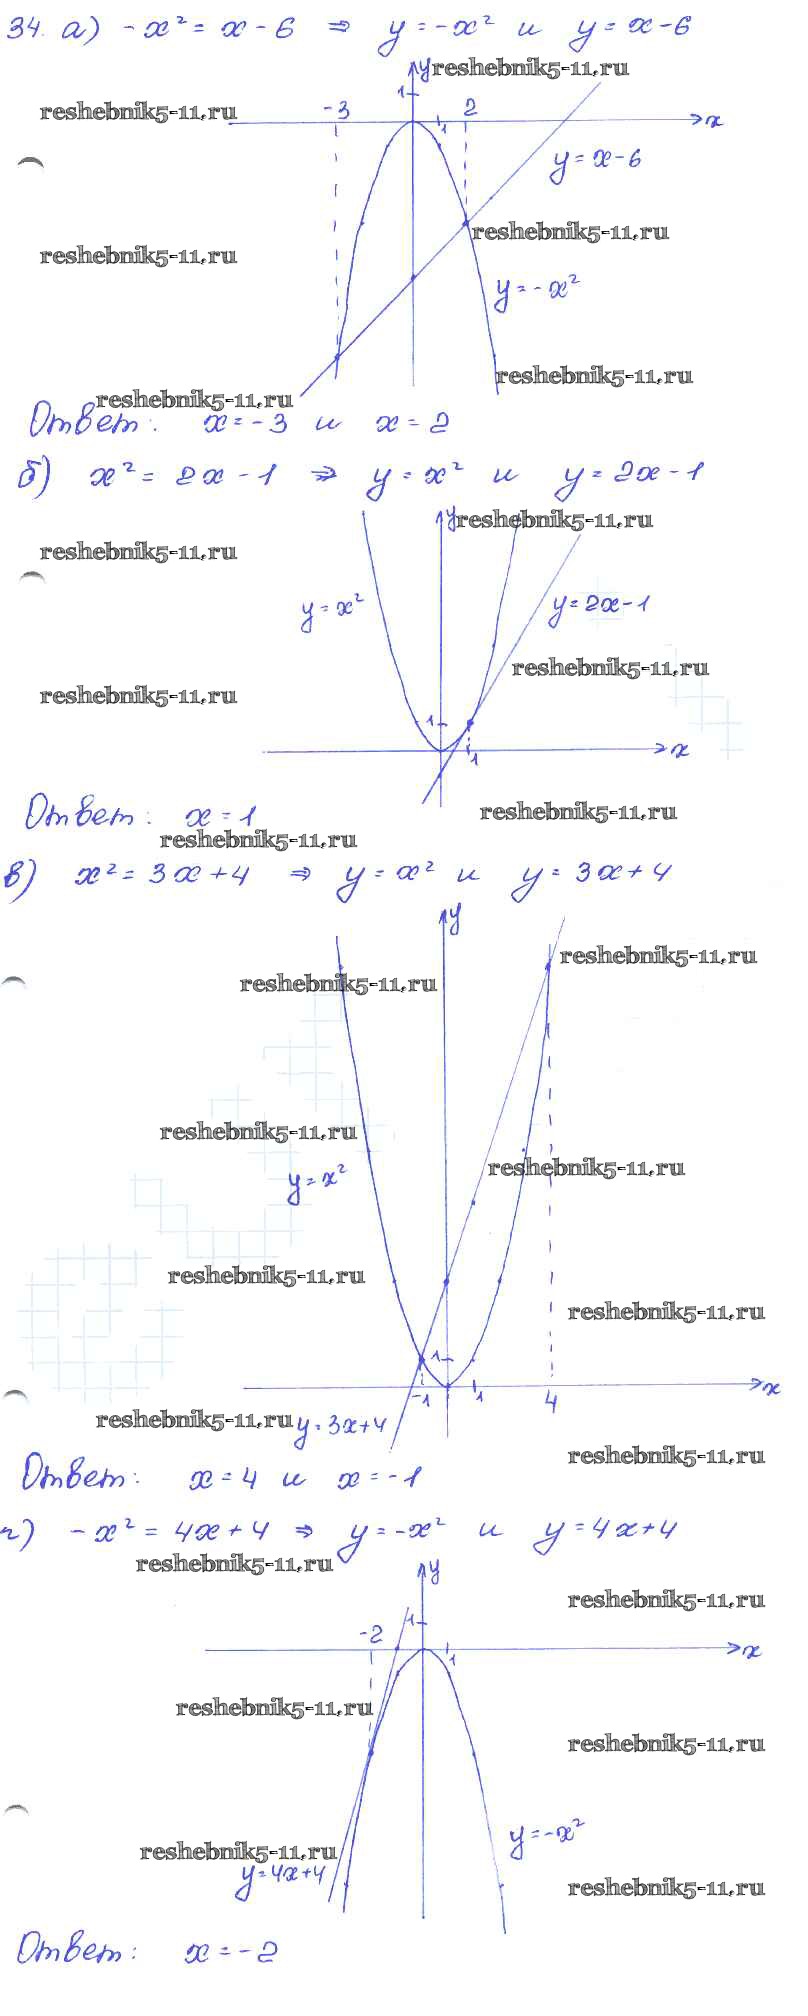 34. а) -x² = x - 6 ⇒ y = -x² и y = x - 6
y reshebnik5-11.ru
1
reshebnik5-11.ru -3 2
1 x
y = x - 6
reshebnik5-11.ru
reshebnik5-11.ru
y = -x²
reshebnik5-11.ru
reshebnik5-11.ru
Ответ: x = -3 и x = 2
б) x² = 2x - 1 ⇒ y = x² и y = 2x - 1
y reshebnik5-11.ru
reshebnik5-11.ru
y = x² y = 2x - 1
reshebnik5-11.ru
reshebnik5-11.ru
1
x
1
Ответ: x = 1 reshebnik5-11.ru
reshebnik5-11.ru
в) x² = 3x + 4 ⇒ y = x² и y = 3x + 4
y
reshebnik5-11.ru
reshebnik5-11.ru
reshebnik5-11.ru
reshebnik5-11.ru
y = x²
reshebnik5-11.ru
reshebnik5-11.ru
1
x
-1 1 4
reshebnik5-11.ru y = 3x + 4
reshebnik5-11.ru
Ответ: x = 4 и x = -1
г) -x² = 4x + 4 ⇒ y = -x² и y = 4x + 4
reshebnik5-11.ru y
reshebnik5-11.ru
1
-2
1 x
reshebnik5-11.ru
reshebnik5-11.ru
y = -x²
reshebnik5-11.ru
y = 4x + 4
reshebnik5-11.ru
Ответ: x = -2